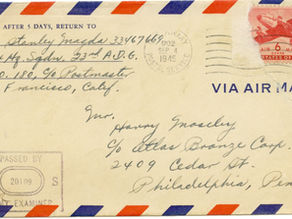 AFTER 5 DAYS, RETURN TO
Stanley 33467669
Hq. Sqdn. 22nd A.D.G.
O.-180, c/o Postmaster
Francisco, Calif.
1945
6¢
UNITED STATES OF
VIA AIR MA
Harry Moseley
c/o Atlas Bronze Corp.
2409 Cedar St.
Philadelphia, Pen
PASSED BY
20109
S
EXAMINER